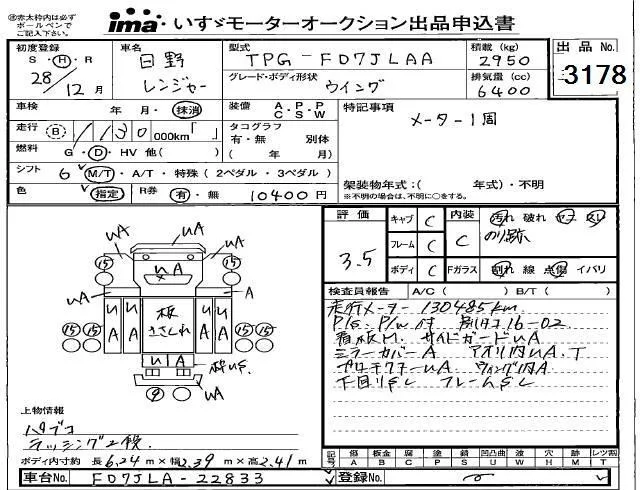 ※赤太枠内は必ず
ボールペンで
ご記入下さい。
ima・いすゞモーターオークション出品申込書
初度登録 車名 型式 積載(kg) 出品No.
S・H・R 日野 TPG-FD7JLAA 2950
28/12月 レンジャー グレード・ボディ形状 ウイング 排気量(cc) 6400 3178
車検 年・月・抹消 装備 A・P・P C S W 特記事項
走行 B 1130,000km「 」 タコグラフ 有・無 別体 メーター1周
燃料 G・D・HV 他( ) ( 年 月)
シフト 6 M/T・A/T・特殊(2ペダル・3ペダル)
色 指定 R券 有・無 10400円
架装物年式:( 年式)・不明
※不明の場合は、不明に○をする。
評価 3.5
キャブ C 内装 C 汚れ 破れ ヤケ スレ
フレーム C のり跡
ボディ C Fガラス 割れ 線 点傷 イバリ
検査員報告 A/C( ) B/T( )
走行メーター 130485km
P/S、P/W付 16-02
看板M、サイドガードUA
ミラーカバーA アオリ内UA、T
プロテクターUA ウィング内A
下回りSC フレームSC
UA UA
15 UA 15
A A
UA UA 板ささくれ UA UA
15 15 15 15
UA
9 UA
上物情報
パブコ
ラッシング2段
ボディ内寸約 長6.24m×幅2.39m×高2.41m
記号 傷 板金 腐 塗 錆 凹凸曲 波 穴 雑 レツ割
A B C P S U W H M T
車台No. FD7JLA-22833 登録No.